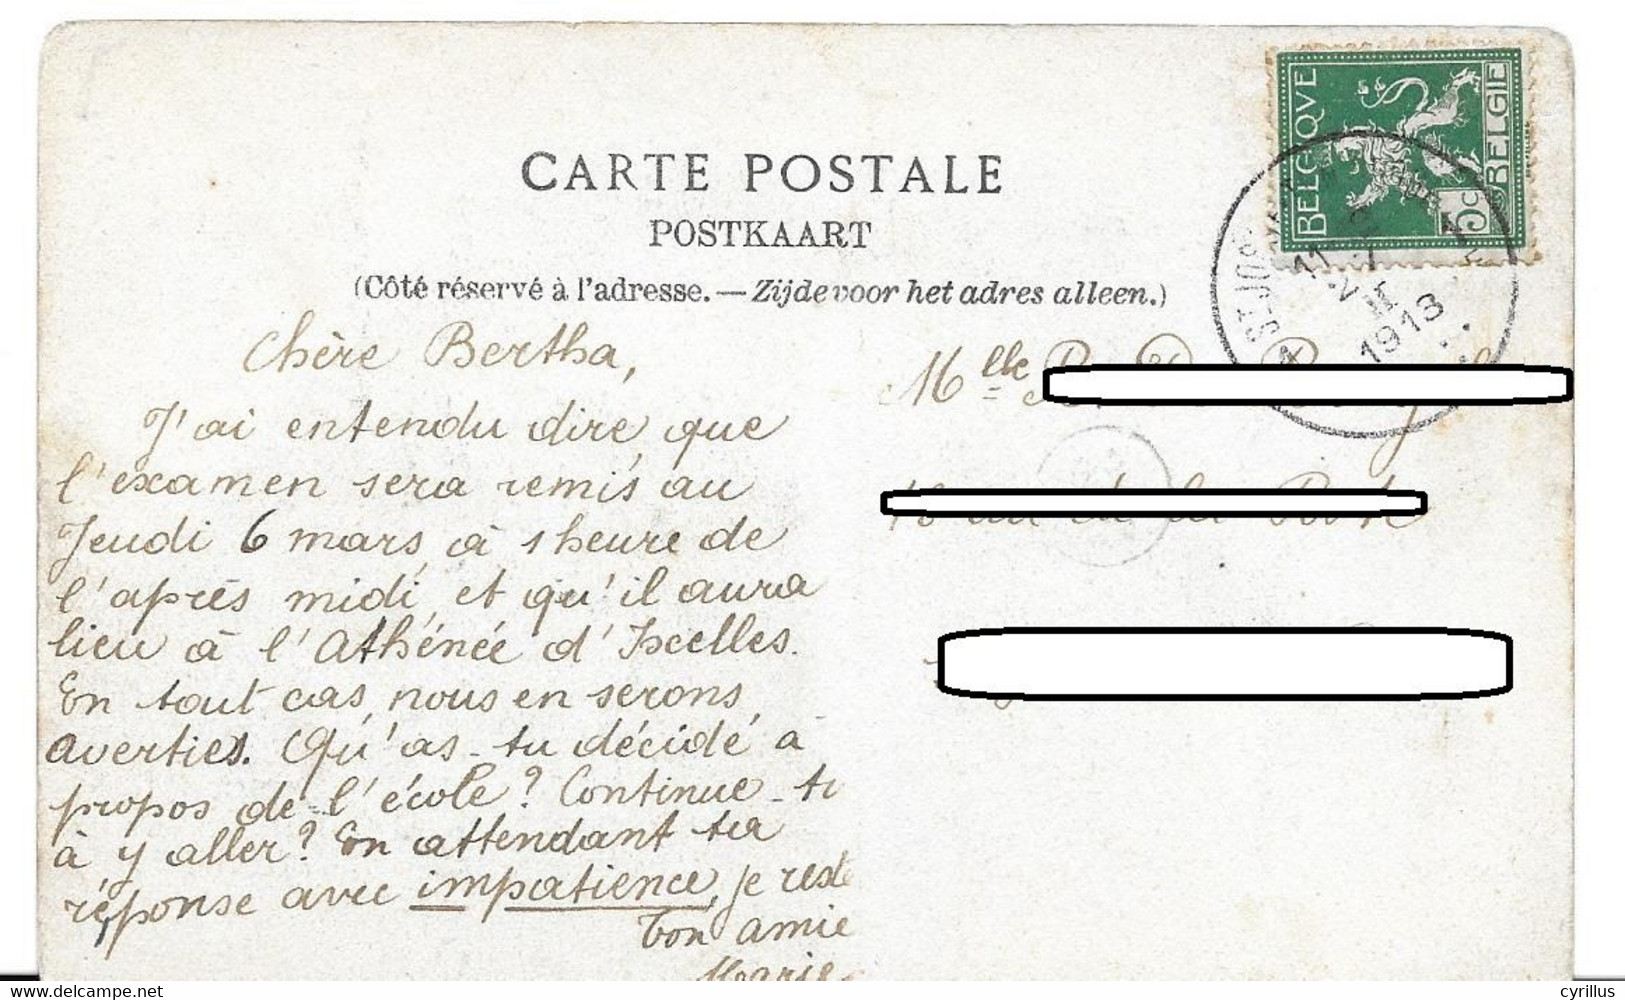 BELGIQUE
BELGIE
5c
CARTE POSTALE
POSTKAART
(Côté réservé à l'adresse. — Zijde voor het adres alleen.)
1913
Chère Bertha,
J'ai entendu dire que
l'examen sera remis au
Jeudi 6 mars, à 1 heure de
l'après midi, et qu'il aura
lieu à l'Athénée d'Ixelles.
En tout cas, nous en serons,
averties. Qu'as-tu décidé à
propos de l'école? Continue-tu
à y aller? En attendant ta
réponse avec impatience, je reste
Ton amie
Marie
Mlle
www.delcampe.net
cyrillus